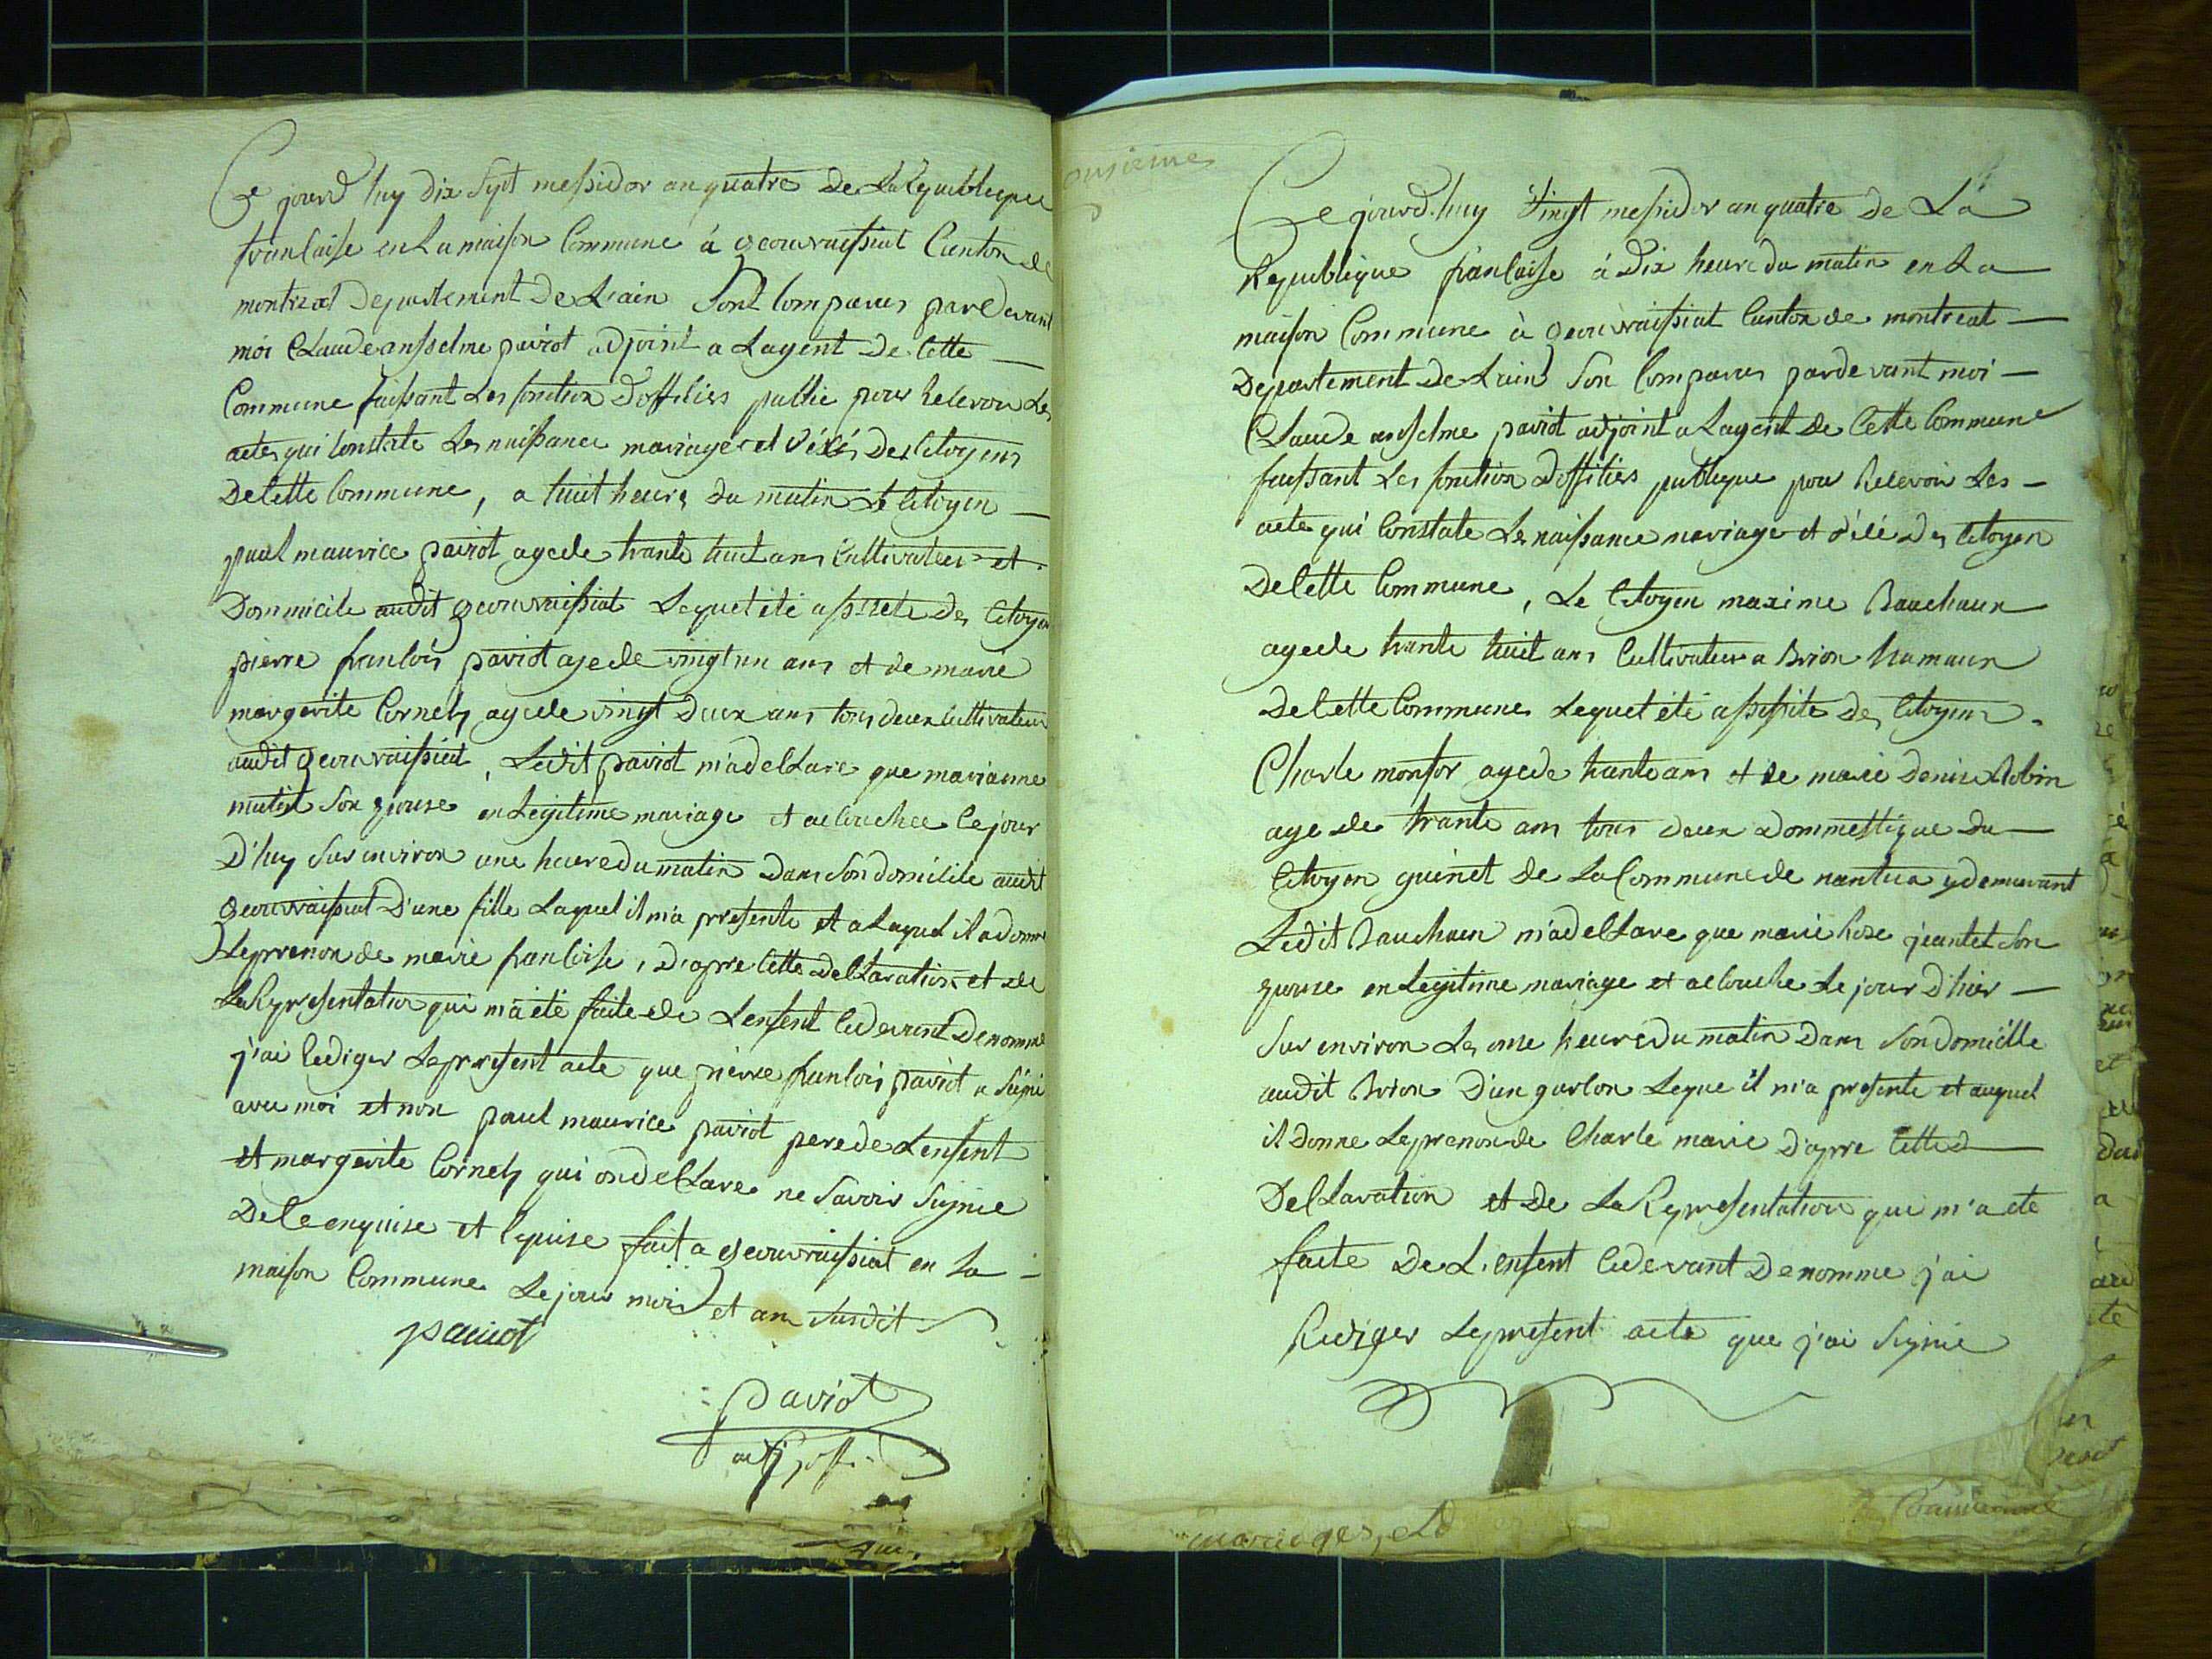 Ce jourd huy dix sept messidor an quatre de La Republique
francaise en La maison Commune à geouvraissiat Canton de
montreal Departement De L'ain Sont Comparus pardevant
moi Claude ansselme paviot adjoint a Lagent De Cette
Commune faissant Les fonction Dofficiers public pour Recevoir Les
actes qui Constate Les naissance mariages et décés Des Citoyens
De Cette Commune, a huit heures du matin Le Citoyen
paul maurice paviot agede trante huit ans Cultivateur et
Dommicile audit geouvraissiat Lequel été assisté Des Citoyen
pierre francois paviot agede vingt un ans et de marie
margerite Cornely agede vingt Deux ans tous deux Cultivateur
audit geouvraissiat, Ledit paviot m'a declare que marianne
mutin Son epouse en Legitime mariage et accouchee Ce jour
D'huy Sur environ une heure du matin Dans Son domicile audit
geouvraissiat D'une fille Laquel il m'a presente et a Laquel il a donne
Le prenon de marie francoise, D'apre Cette Declaration et de
La Representation qui m'a été faite de L'enfent Cidevant Denomme
j'ai Rediger Le present acte que pierre francois paviot a Signé
avec moi et non paul maurice paviot pere de L'enfent
et margerite Cornely qui on declare ne Savoir Signie
De Ce enquise et Requise fait a geouvraissiat en La
maison Commune Le jour mois et an Susdit
paviot
Paviot
adj
onsieme
Ce jourd.huy Vingt messidor an quatre de La
Republique francaise à Dix heure du matin en La
maison Commune à geouvraissiat Canton de montreal
Departement De L'ain Son Comparus pardevant moi
Claude ansselme paviot adjoint a Lagent De Cette Commune
faissant Les fonction Dofficiers publique pour Recevoir Les
acte qui Constate Les naissance mariage et décé Des Citoyen
De Cette Commune, Le Citoyen maxime Bauchaux
agede trante huit ans Cultivateur a Brion hamaux
De Cette Commune Lequel été assisite Des Citoyens
Charle monfor agede trante ans et de marie denise Robin
age de trante ans tous deux Dommestique du
Citoyen guinet de La Commune de nantua y demeurant
Ledit Bauchaux m'a declare que marie Rose jeantet Son
epouse en Legitime mariage et accouche Le jour D'hier
Sur environ Les onse heure du matin Dans Son domicille
audit Brion D'un garcon Leque il m'a presente et auquel
il Donne Le prenon de Charle marie D'apre Cette D
Declaration et de La Representation qui m'a ete
faite De L'enfent Cidevant Denomme j'ai
Rediger Le present acte que j'ai Signie
mariages, et d